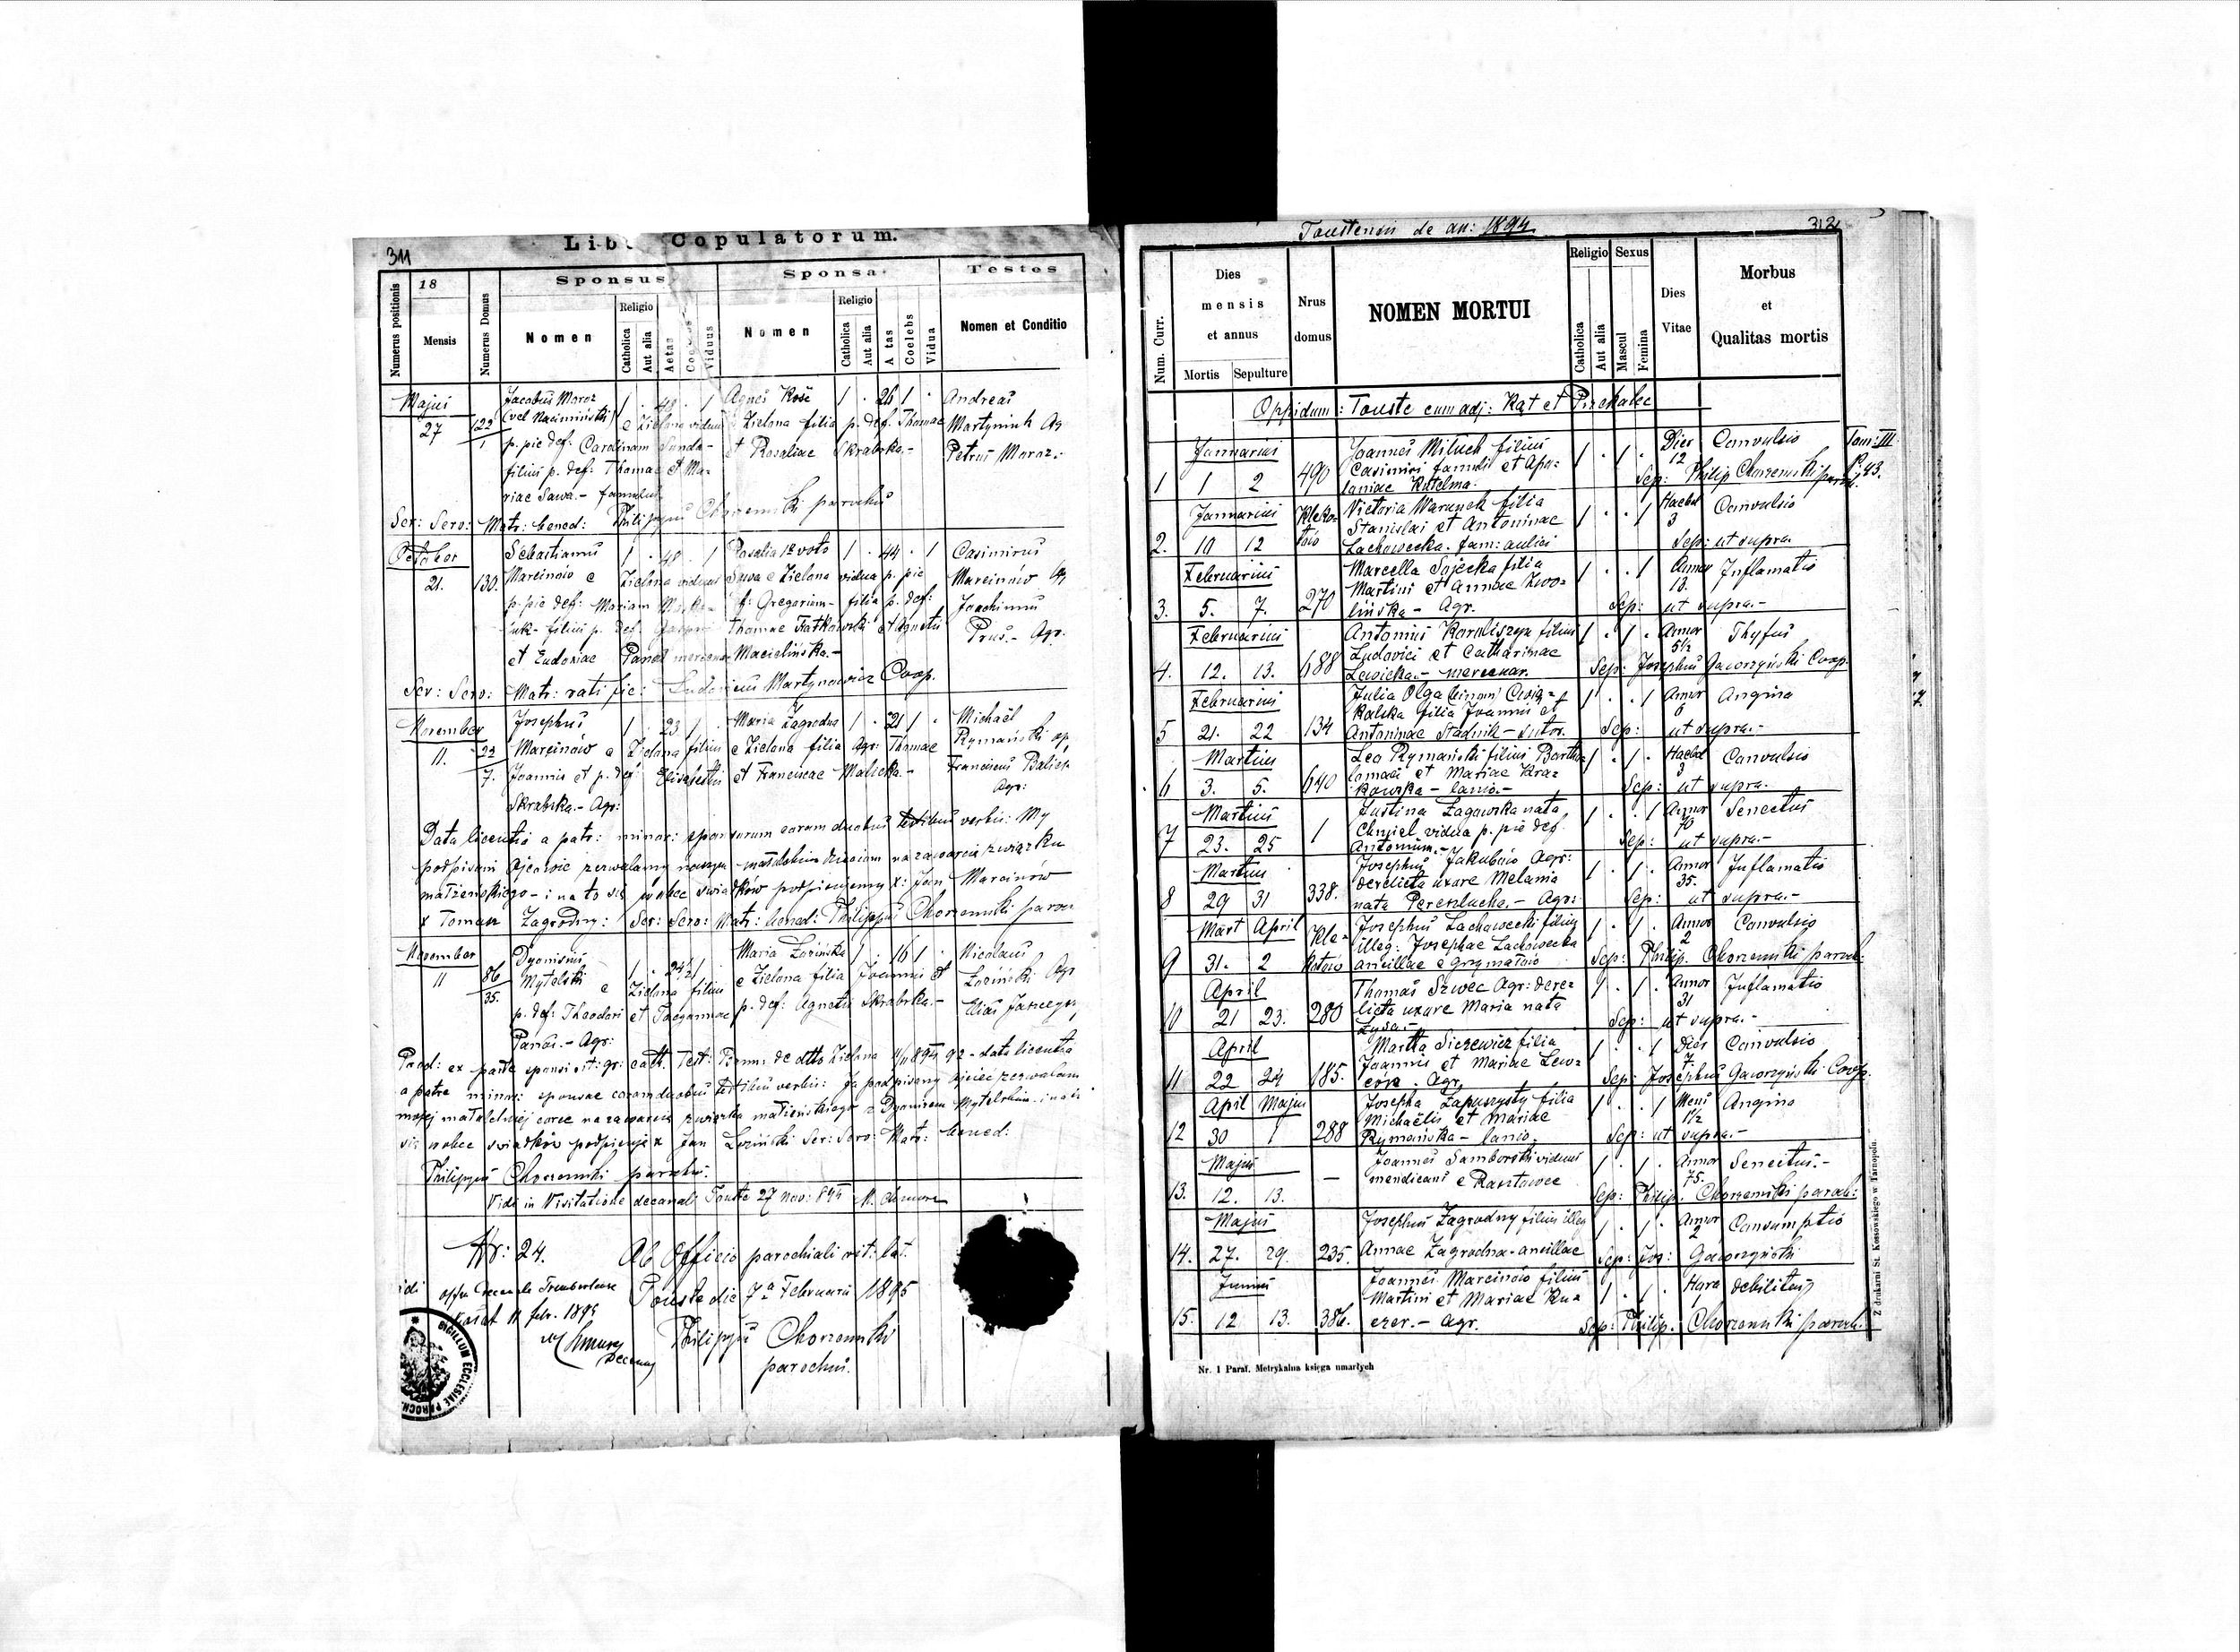 311
Liber Copulatorum.
Numerus positionis
18
Mensis
Numerus Domus
Sponsus
Nomen
Religio
Catholica
Aut alia
Aetas
Viduus
Sponsa
Nomen
Religio
Catholica
Aut alia
Aetas
Coelebs
Vidua
Testes
Nomen et Conditio
Majus
27
122
1
Jacobus Moroz 1 . 48 . 1 Agnes Kość 1 . 26 1 . Andreas
e Zielona viduus e Zielona filia p. def. Thomae Martyniuk Ag
p. pie def: Carolinam Sunda- et Rosaliae Skrabska.- Petrus Moroz.-
filius p. def: Thomae et Ma-
riae Sawa.- famulus
Scr: Scro: Matr: bened: Philippus Chorzemski parochus
October
21.
130.
Sebastianus 1 . 48 . 1 Rosalia 1° voto 1 . 44 . 1 Casimirus
Marcinów e Zielona viduus Sawa e Zielona vidua p. pie Marcinów Ag
p. pie def: Mariam f: Gregorium- filia p. def: Joachimus
filius p. def. Thomae Fatkowski et Agnetis Prus.- Agr.
et Eudoxiae Macielińska.-
Scr: Scro: Matr: ratific: Ludovicus Martynowicz Coop.
November
11.
23
7.
Josephus 1 . 23 1 . Maria Zagrodna 1 . 21 1 . Michaël
Marcinów e Zielona filius e Zielona filia Agr: Thomae Rymański
Joannis et p. def: Elisabethae et Franciscae Malicka.- Franciscus
Skrabska.- Agr: Agr:
Data licentia a patr: minor: sponsorum coram duobus testibus verbis: My
podpisani ojcowie zezwalamy naszym małoletnim dzieciom na zawarcie związku
małżeńskiego - i na to się wobec świadków podpisujemy x: Jan Marcinów
x Tomasz Zagrodny: Scr: Scro: Matr: bened: Philippus Chorzemski paroch
November
11
86
35.
Dyonisius Maria Łozińska 1 . 16 1 . Nicolaus
Mytelski e 1 . 24½ 1 Zielona filius e Zielona filia Joannis et Łoziński Agr
p. def: Theodori et p. def: Agnetis Skrabska.- Elias
Panas.- Agr:
Prod: ex parte sponsi rit: gr: cath. Test: Bann: de dtto Zielona 11/11 894 92 - data licentia
a patre minor: sponsae coram duobus testibus verbis: Ja podpisany ojciec zezwalam
mojej małoletniej córce na zawarcie związku małżeńskiego z Dyonizem Mytelskim i na to
się wobec świadków podpisuje x Jan Łoziński Scr: Scro: Matr: bened:
Philippus Chorzemski parochus.
Vidi in Visitatione decanali Touste 27 nov: 894
Nr: 24. Ab Officio parochiali rit: lat.
Touste die 7ª Februarii 1895
11 febr. 1895
Philippus Chorzemski
parochus.
SIGILLUM ECCLESIAE PAROCH.
Toustensis de an: 1894
312
Num. Curr.
Dies
mensis
et annus
Mortis
Sepulture
Nrus
domus
NOMEN MORTUI
Religio
Catholica
Aut alia
Sexus
Mascul
Femina
Dies
Vitae
Morbus
et
Qualitas mortis
Oppidum: Touste cum adj: Kąt et Przekalec
Januarius Joannes Miluch filius 1 . 1 . Dier Convulsio Tom: III
Casimiri famuli et Apo- 12 P. 43.
1 1 2 490 loniae Katelma. Sep: Philip Chorzemski paroch.
Januarius Kleko- Victoria Warunek filia 1 . . 1 Hebd Convulsio
tów Stanislai et Antoninae 3
2. 10 12 Lachowecka. fam: aulici Sep: ut supra.
Februarius Marcella Sojecka filia 1 . . 1 Annor Inflamatio
Martini et Annae Zwo- 13.
3. 5. 7. 270 lińska - Agr. Sep: ut supra.-
Februarius Antonius Korniliszyn filius 1 . 1 . Annor Thyfus
Ludovici et Catharinae 5½
4. 12. 13. 688 Lewicka.- mercenar. Sep: Josephus Gaworzyński Coop.
Februarius Julia Olga Cwią- 1 . . 1 Annor Angina
kalska filia Joannis et 6
5 21. 22 134 Antoninae Stadnik - sutor. Sep: ut supra.-
Martius Leo Rymański filius Bartho- 1 . 1 . Hebd Convulsio
lomaei et Mariae Kra- 3
6 3. 5. 640 kowska - lanio.- Sep: ut supra.
Martius Justina Zagorska nata 1 . . 1 Annor Senectus
Chmiel vidua p. pie def. 70
7 23. 25 1 Antonium.- Sep: ut supra.-
Martius Josephus Jakubów Agr: 1 . 1 . Annor Inflamatio
derelicta uxore Melania 35.
8 29 31 338. nata Pereszlucha.- Agr: Sep: ut supra.-
Mart April Kle- Josephus Lachowecki filius 1 . 1 . Annor Convulsio
illeg: Josephae Lachowecka 2
9 31. 2 kotów ancillae e Grzymałów Sep: Philip. Chorzemski paroch:
April Thomas Szwec Agr: dere- 1 . 1 . Annor Inflamatio
licta uxore Maria nata 31
10 21 23. 280 Łysa.- Sep: ut supra.-
April Martha Sierewicz filia 1 . . 1 Dies Convulsio
Joannis et Mariae Lew- 7
11 22 24 185. Agr. Sep: Josephus Gaworzyński Coop.
April Majus Josepha Zapuszysty filia 1 . . 1 Mens Angina
Michaëlis et Mariae 1½
12 30 1 288 Rymańska - lanio. Sep: ut supra.-
Majus Joannes Samborski viduus 1 . 1 . Annor Senectus.-
mendicans e Rasztowce 75.
13. 12. 13. - Sep: Philip. Chorzemski paroch:
Majus Josephus Zagrodny filius illeg 1 . 1 . Annor Consumptio
2
14. 27. 29. 235. Annae Zagrodna - ancillae Sep: Jos: Gaworzyński
Junius Joannes Marcinów filius 1 . 1 . Hora debilitas
Martini et Mariae Ku- 1
15. 12 13. 386. czer.- Agr. Sep: Philip. Chorzemski paroch.
Nr. 1 Paraf. Metrykalna księga umarłych
Z drukarni St. Kossowskiego w Tarnopolu.